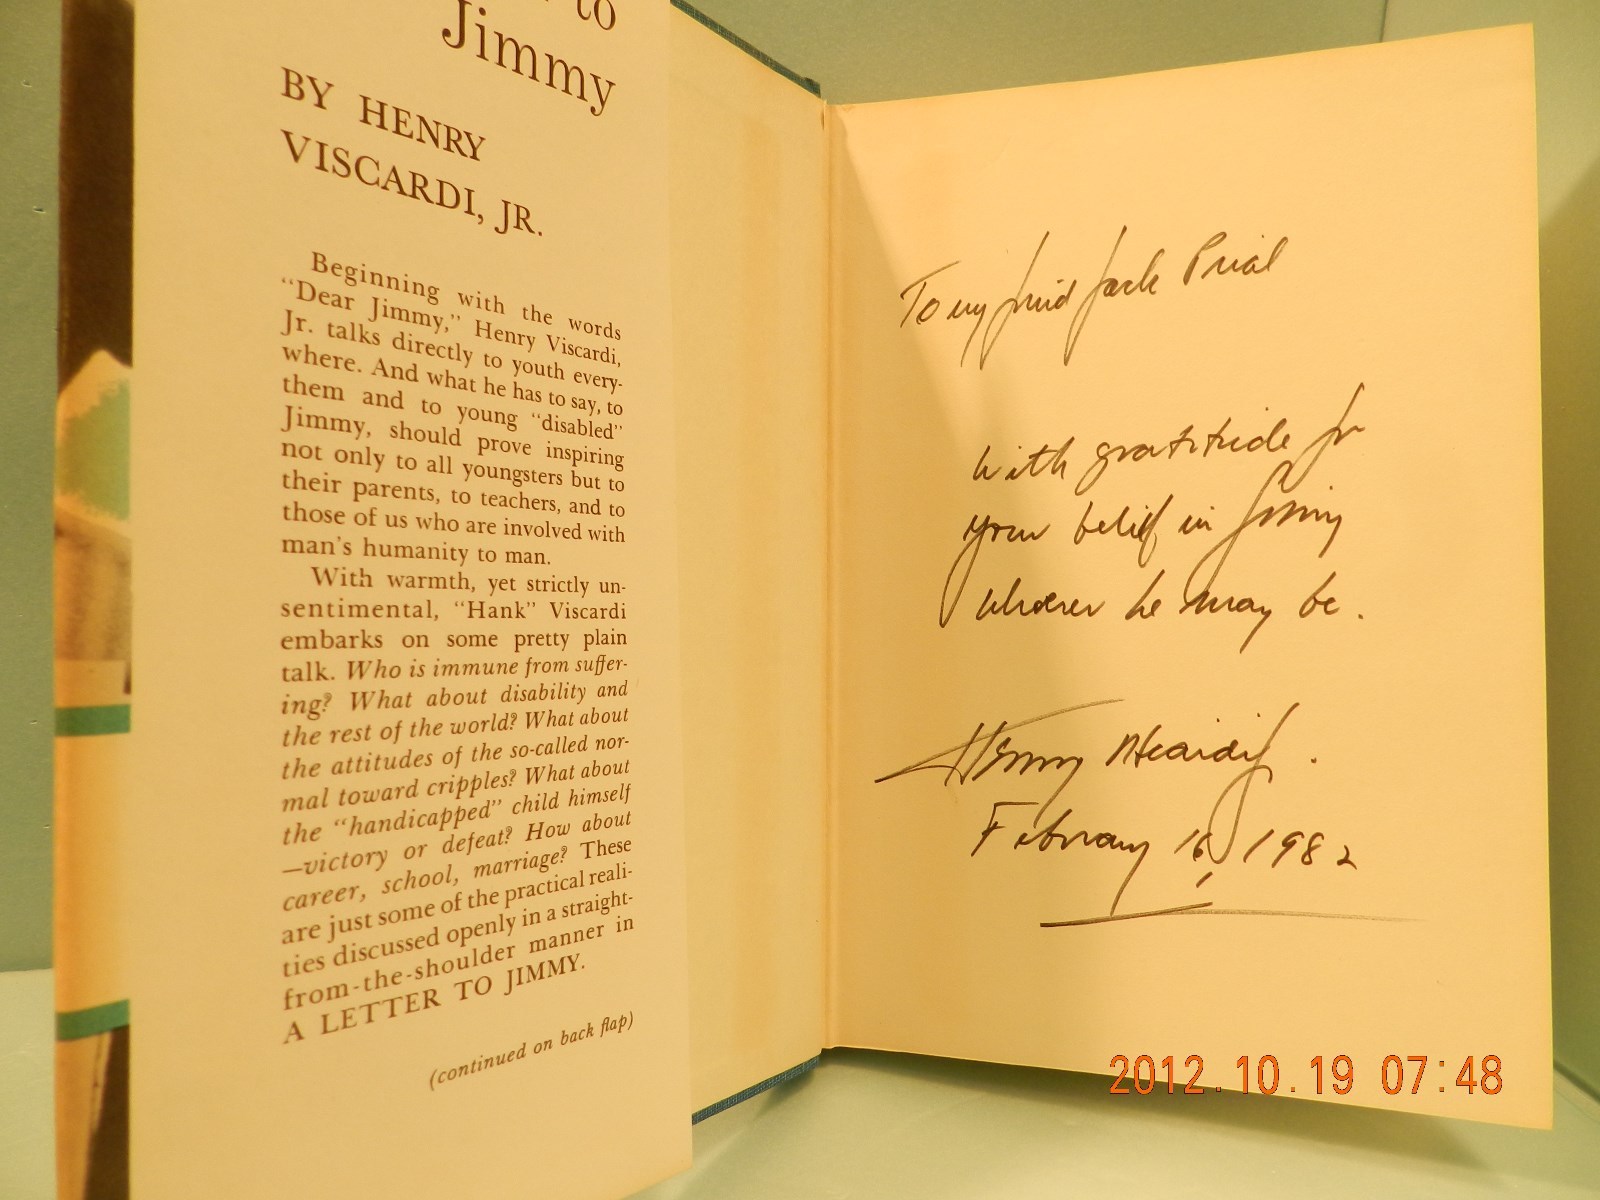 to
Jimmy
BY HENRY
VISCARDI, JR.
Beginning with the words
“Dear Jimmy,” Henry Viscardi,
Jr. talks directly to youth every-
where. And what he has to say, to
them and to young “disabled”
Jimmy, should prove inspiring
not only to all youngsters but to
their parents, to teachers, and to
those of us who are involved with
man's humanity to man.
With warmth, yet strictly un-
sentimental, “Hank” Viscardi
embarks on some pretty plain
talk. Who is immune from suffer-
ing? What about disability and
the rest of the world? What about
the attitudes of the so-called nor-
mal toward cripples? What about
the “handicapped” child himself
—victory or defeat? How about
career, school, marriage? These
are just some of the practical reali-
ties discussed openly in a straight-
from-the-shoulder manner in
A LETTER TO JIMMY.
(continued on back flap)
To my friend Jack Prial
with gratitude for
your belief in Jimmy
wherever he may be.
Henry Viscardi Jr.
February 16, 1982
2012.10.19 07:48